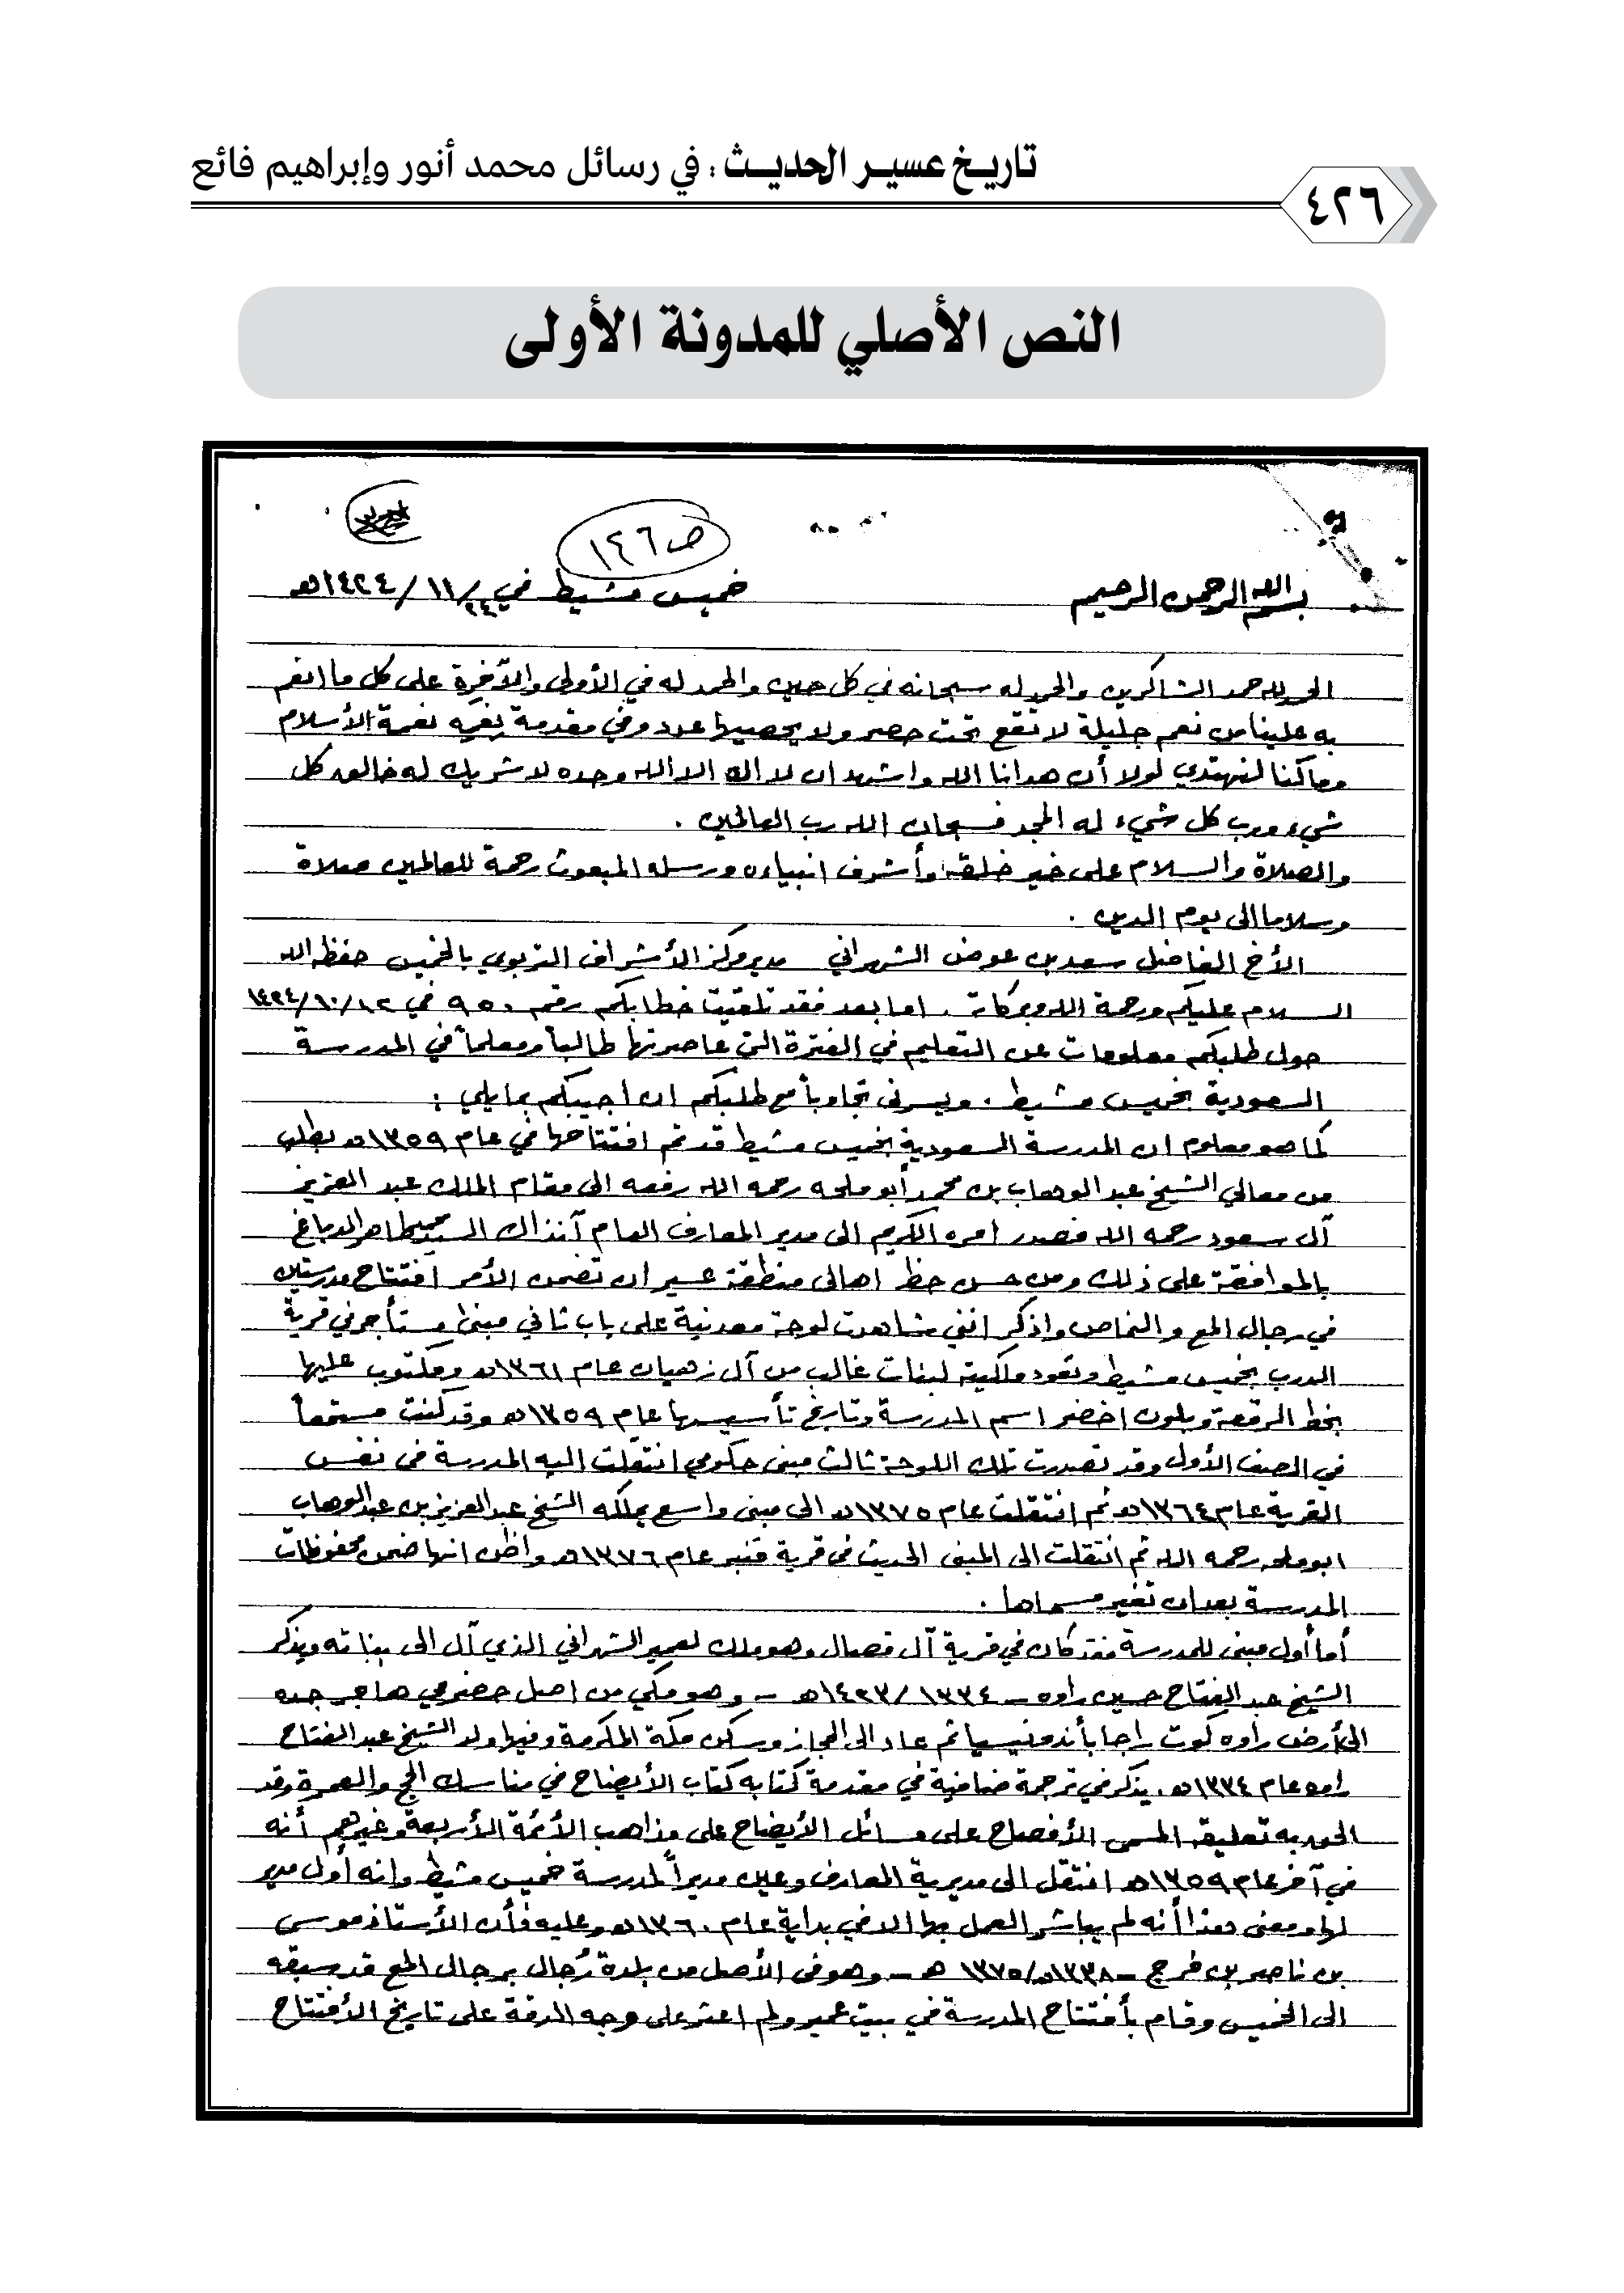 تاريخ عسير الحديث : في رسائل محمد أنور وإبراهيم فائع
٤٢٦
النص الأصلي للمدونة الأولى
ص ١٢٦
بسم الله الرحمن الرحيم
خميس مشيط في ٢٤/ ١١/ ١٤٢٤هـ
الحمد لله حمد الشاكرين والحمد له سبحانه في كل حين والحمد له في الأولى والآخرة على كل ما انعم
به علينا من نعم جليلة لا تقع تحت حصر ولا يحصيها عدد وفي مقدمة نعمه نعمة الأسلام
وماكنا لنهتدي لولا أن هدانا الله واشهد ان لا اله الا الله وحده لا شريك له خالق كل
شيء ورب كل شيء له المجد فسبحان الله رب العالمين .
والصلاة والسلام على خير خلقه وأشرف انبياءه ورسله المبعوث رحمة للعالمين صلاة
وسلاما الى يوم الدين .
الأخ الفاضل سعد بن عوض الشهراني مدير مركز الأشراف التربوي بالخميس حفظه الله
السلام عليكم ورحمة الله وبركاته . اما بعد فقد تلقيت خطابكم رقم ٩٥٠ في ١٢/ ١٠/ ١٤٢٤
حول طلبكم معلومات عن التعليم في الفترة التي عاصرتها طالباً ومعلماً في المدرسة
السعودية بخميس مشيط . ويسرني تجاوباً مع طلبكم ان اجيبكم بمايلي :
كما هو معلوم ان المدرسة السعودية بخميس مشيط قد تم افتتاحها في عام ١٣٥٩هـ بطلب
من معالي الشيخ عبد الوهاب بن محمد أبو ملحه رحمه الله رفعه الى مقام الملك عبد العزيز
آل سعود رحمه الله فصدر امره الكريم الى مدير المعارف العام آنذاك السيد محمد طاهر الدباغ
بالموافقة على ذلك ومن حسن حظ اهالي منطقة عسير ان تضمن الأمر افتتاح مدرستين
في رجال المع والنماص واذكر انني شاهدت لوحة معدنية على باب ثاني مبنى مستأجر في قرية
الدرب بخميس مشيط وتعود ملكيته لبنات غالب من آل زهيان عام ١٣٦١هـ ومكتوب عليها
بخط الرقعة وبلون اخضر اسم المدرسة وتاريخ تأسيسها عام ١٣٥٩هـ وقد كنت مستمعاً
في الصف الأول وقد تصدرت تلك اللوحة ثالث مبنى حكومي انتقلت اليه المدرسة في نفس
القرية عام ١٣٦٤هـ ثم انتقلت عام ١٣٧٥هـ الى مبنى واسع يملكه الشيخ عبدالعزيز بن عبدالوهاب
ابو ملحه رحمه الله ثم انتقلت الى المبنى الحديث في قرية قنبر عام ١٣٧٦هـ واظن انها ضمن محفوظات
المدرسة بعد ان تغير مسماها .
أما أول مبنى للمدرسة فقد كان في قرية آل قصال وهو ملك لعمير الشهراني الذي آل الى بناته ويذكر
الشيخ عبد الفتاح حسين راوه – ١٣٣٤ /١٤٢٣هـ – وهو مكي من اصل حضرمي هاجر جده
الى أرض راوه كوت راجا بأندونيسيا ثم عاد الى الحجاز وسكن مكة المكرمة وفيها ولد الشيخ عبد الفتاح
راوه عام ١٣٣٤هـ . يذكر في ترجمة ضافية في مقدمة كتابه كتاب الأيضاح في مناسك الحج والعمرة وقد
الحق به تعليقه المسمى الأفصاح على مسائل الأيضاح على مذاهب الأئمة الأربعة وغيرهم أنه
في آخر عام ١٣٥٩هـ انتقل الى مديرية المعارف وعين مديراً لمدرسة خميس مشيط وانه أول مدير
لها ومعنى هذا أنه لم يباشر العمل بها الا في بداية عام ١٣٦٠هـ وعليه فأن الأستاذ موسى
بن ناصر بن فرج – ١٣٣٨هـ/١٣٧٥ هـ – وهو في الأصل من بلدة رُجال برجال المع قد سبقه
الى الخميس وقام بأفتتاح المدرسة في بيت عمير ولم اعثر على وجه الدقة على تاريخ الأفتتاح